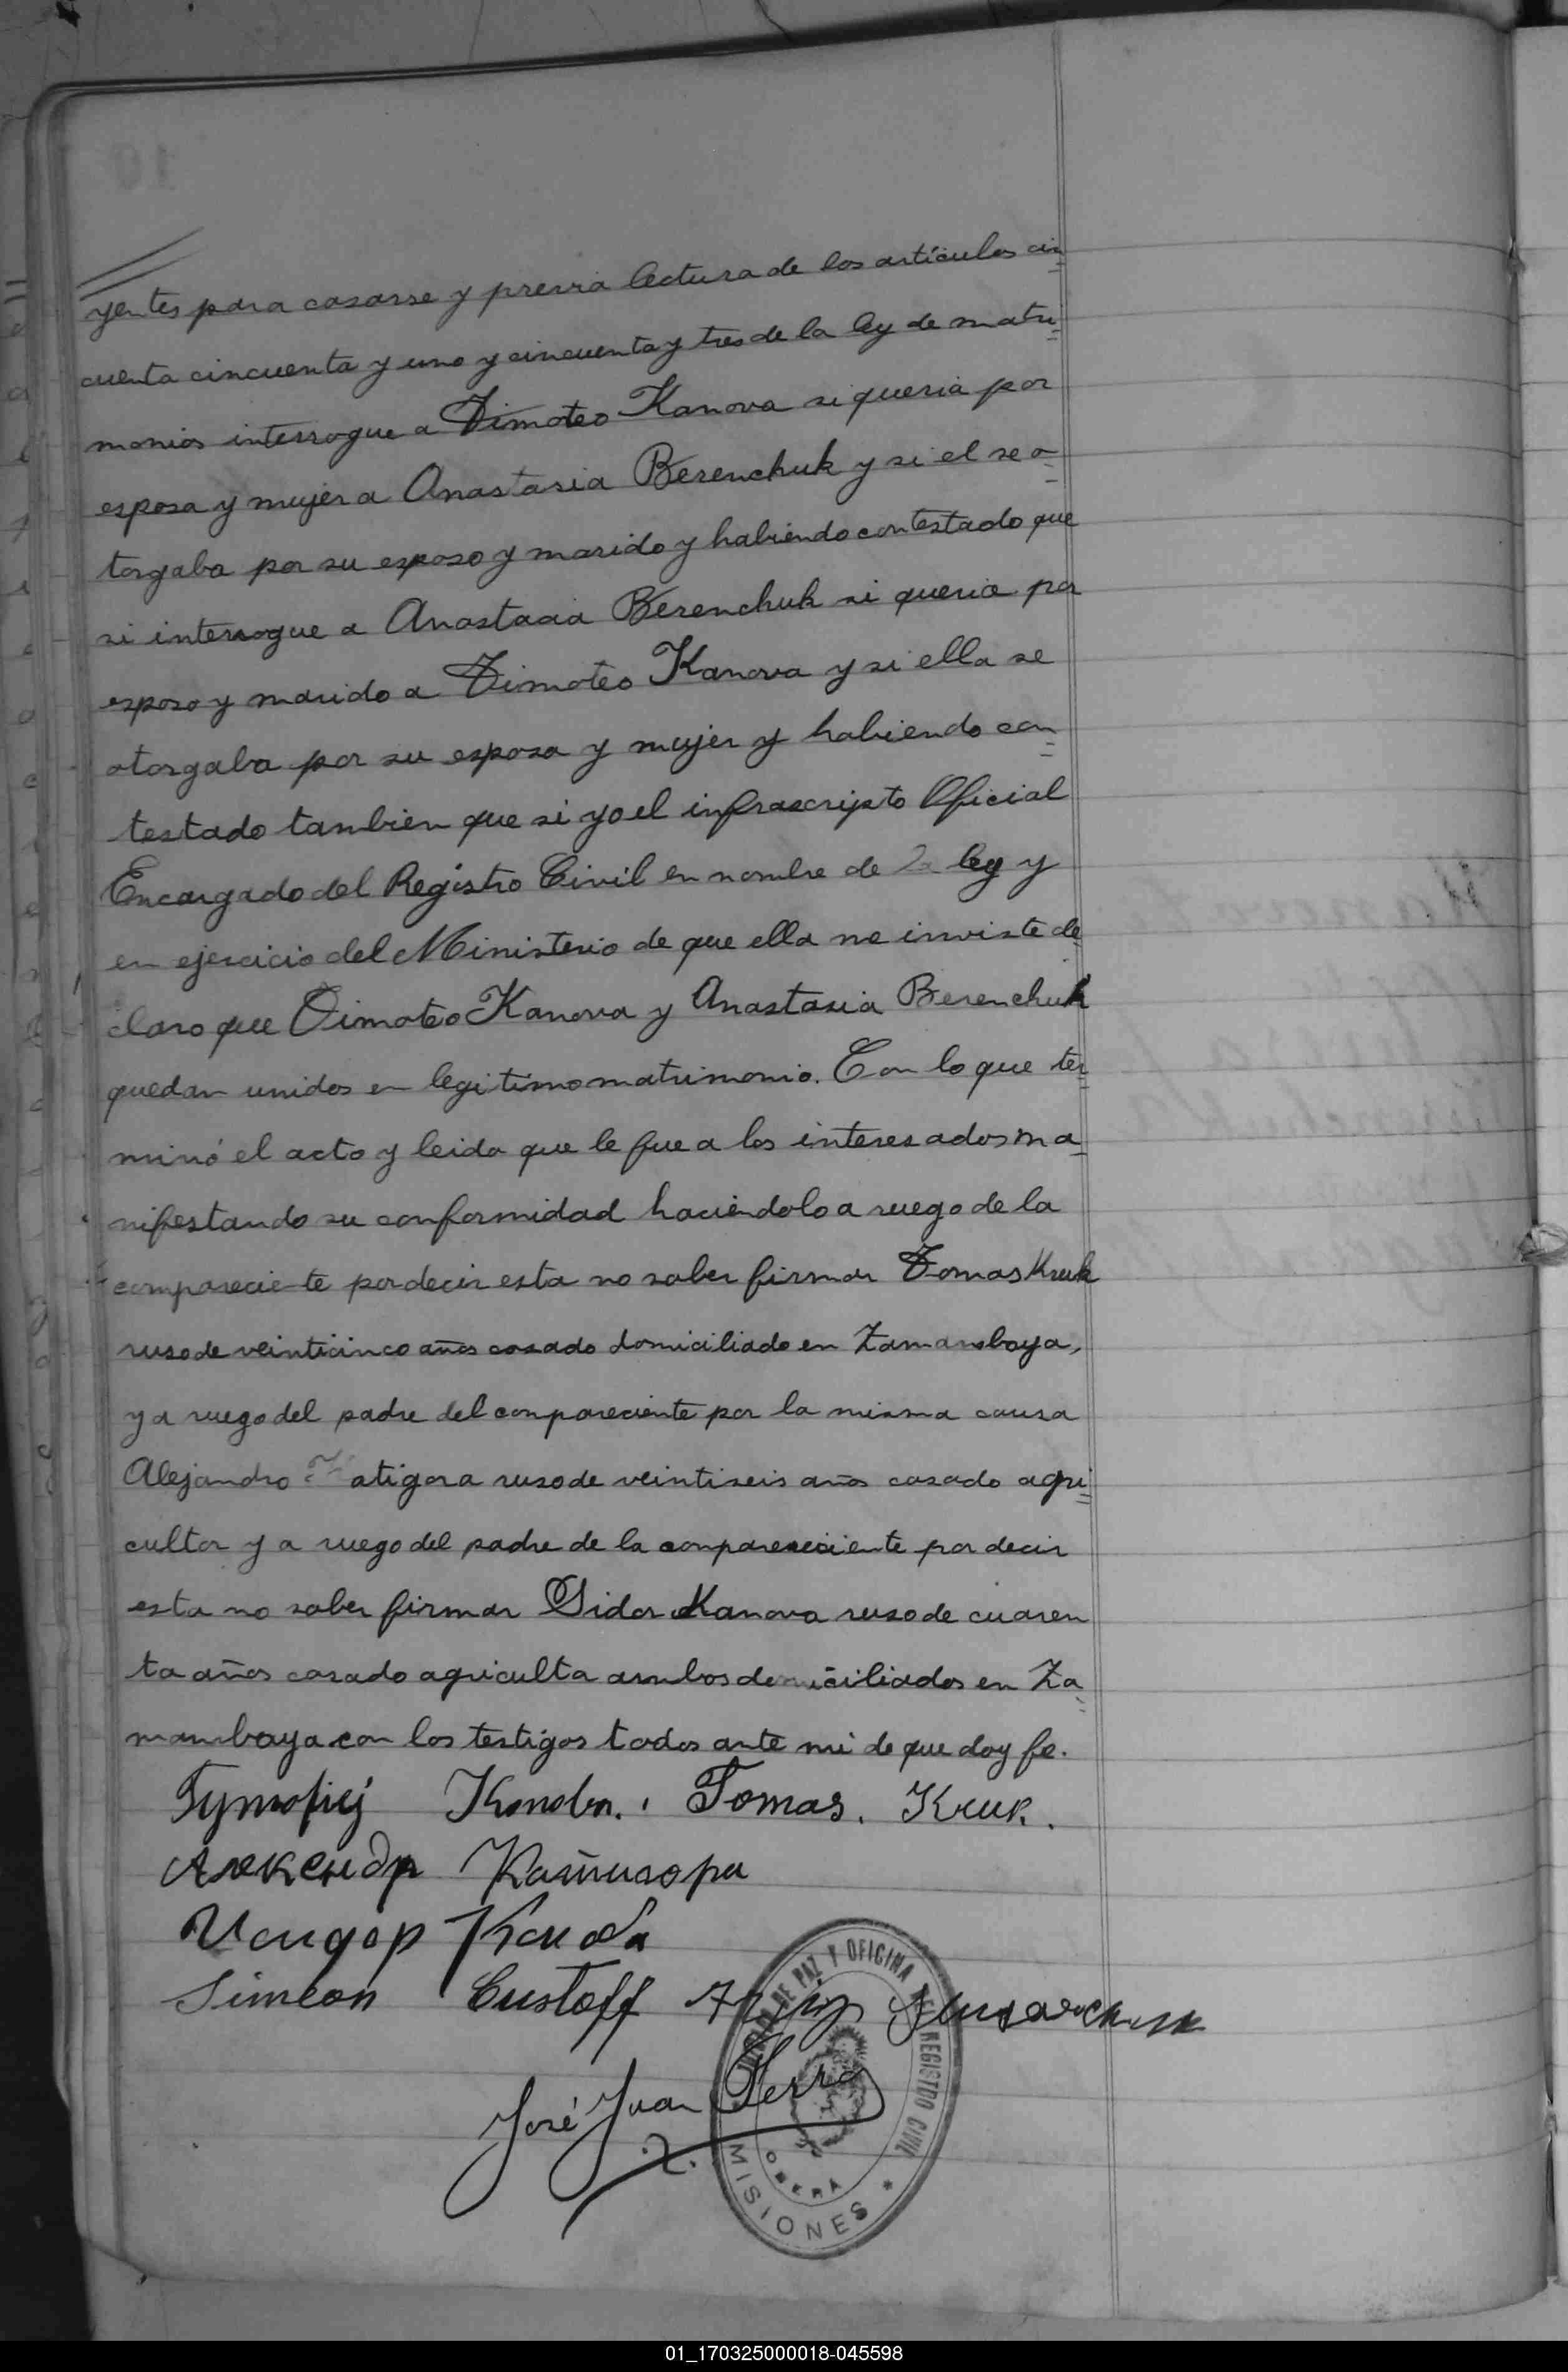 yentes para casarse y previa lectura de los artículos cin
cuenta cincuenta y uno y cincuenta y tres de la ley de matri
monios interrogue a Timoteo Kanova si queria por
esposa y mujer a Anastasia Berenchuk y si el se o
torgaba por su esposo y marido y habiendo contestado que
si interrogue a Anastacia Berenchuk si queria por
esposo y marido a Timoteo Kanova y si ella se
otorgaba por su esposa y mujer y habiendo con
testado tambien que si yo el infrascripto Oficial
Encargado del Registro Civil en nombre de la ley y
en ejercicio del Ministerio de que ella me inviste de
claro que Timoteo Kanova y Anastasia Berenchuk
quedan unidos en legitimo matrimonio. Con lo que ter
minó el acto y leida que le fue a los interesados ma
nifestando su conformidad haciéndolo a ruego de la
compareciente por decir esta no saber firmar Tomas Kruk
ruso de veinticinco años casado domiciliado en Zamambaya,
y a ruego del padre del compareciente por la misma causa
Alejandro Katigora ruso de veintiseis años casado agri
cultor y a ruego del padre de la compareciente por decir
esta no saber firmar Sidor Kanova ruso de cuaren
ta años casado agriculta ambos domiciliados en Za
mambaya con los testigos todos ante mi de que doy fe.
Tomas. Kruk.
Александр
Simeon Custoff
José Juan Serra
JUZGADO DE PAZ Y OFICINA DEL REGISTRO CIVIL
OBERA
MISIONES
01_170325000018-045598